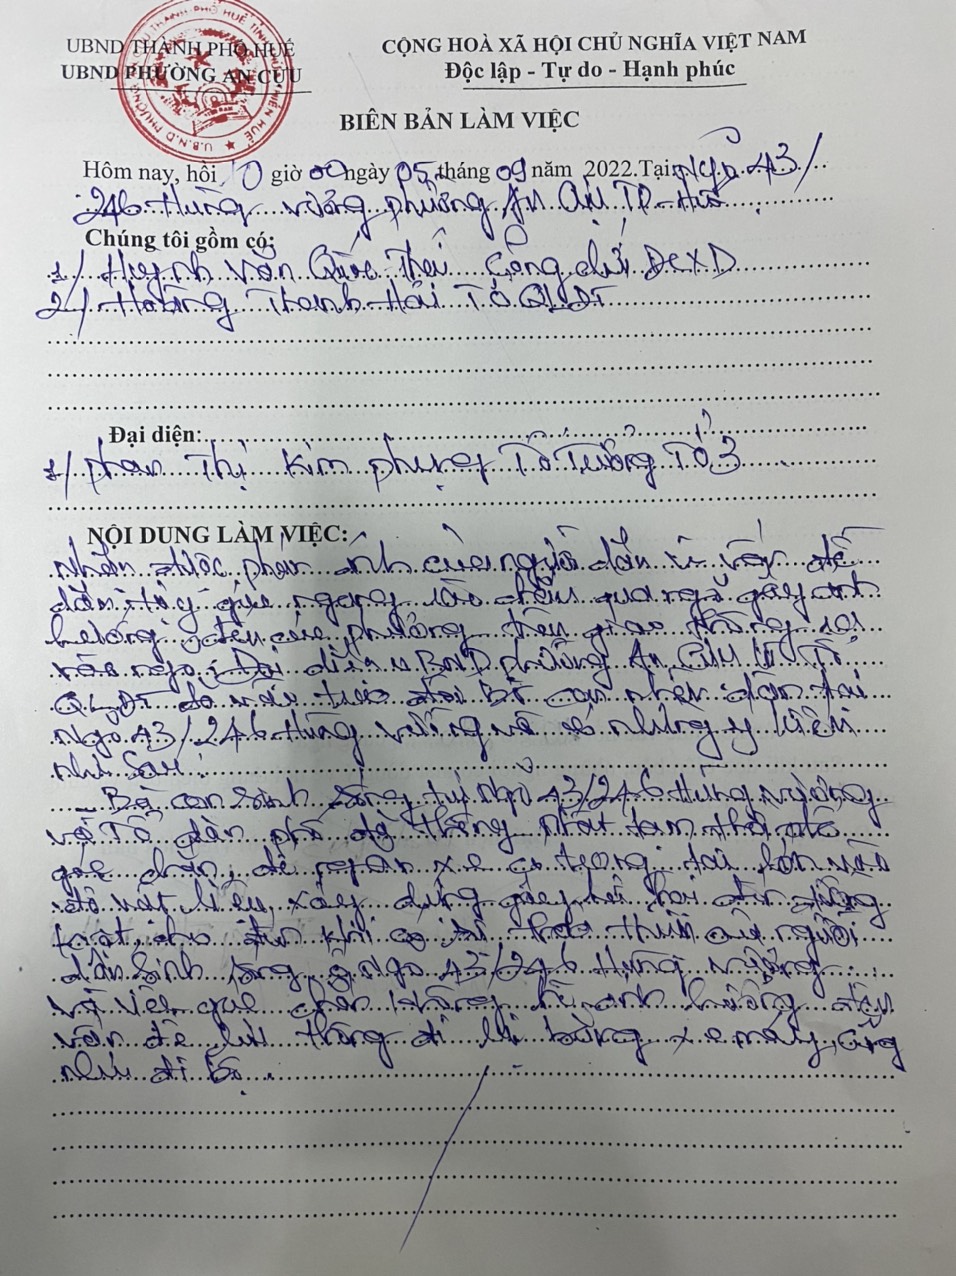 UBND THÀNH PHỐ HUẾ
UBND PHƯỜNG AN CỰU
CỘNG HOÀ XÃ HỘI CHỦ NGHĨA VIỆT NAM
Độc lập - Tự do - Hạnh phúc
BIÊN BẢN LÀM VIỆC
Hôm nay, hồi 10 giờ 00 ngày 05 tháng 09 năm 2022. Tại ngõ 43/
246 Hùng Vương phường An Cựu TP Huế
Chúng tôi gồm có:
1/ Huỳnh Văn Quốc Công chức ĐCXD
2/ Hoàng Thanh Hải Tổ QLĐT
Đại diện:
1/ Phan Thị Kim Phụng Tổ Trưởng Tổ 3
NỘI DUNG LÀM VIỆC:
Nhận được phản ánh của người dân về vấn đề
dân tự ý gác ngang rào chắn qua ngõ gây ảnh
hưởng đến các phương tiện giao thông
vào ngõ. Đại diện UBND phường An Cựu và Tổ
QLĐT bà con nhân dân tại
ngõ 43/246 Hùng Vương và có những ý kiến
như sau:
- Bà con sinh sống tại ngõ 43/246 Hùng Vương
và Tổ dân phố đã thống nhất tạm thời
gác chắn, để ngăn xe có trọng tải lớn vào
đổ vật liệu xây dựng gây hư hại đến đường
cho đến khi có sự thuận của người
dân sinh sống ở ngõ 43/246 Hùng Vương
và việc gác chắn không hề ảnh hưởng đến
vấn đề lưu thông đi lại bằng xe máy, cũng
như đi bộ.